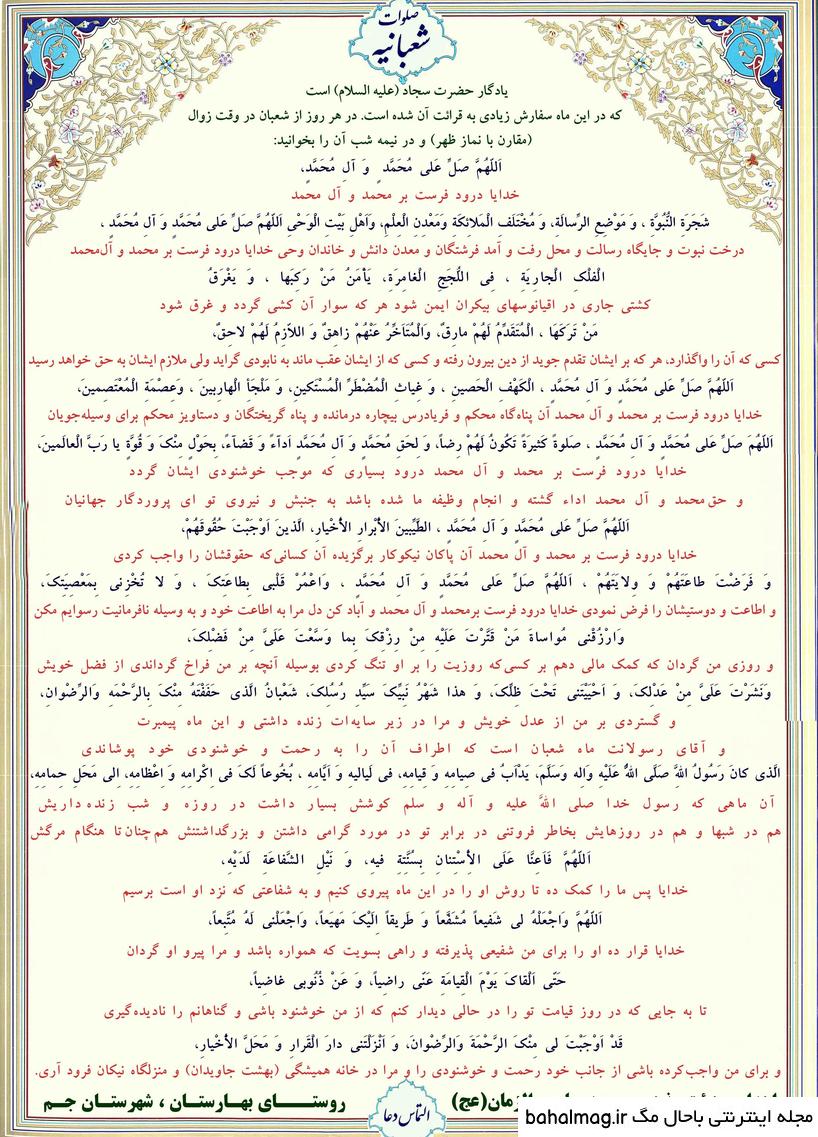 صلوات
شعبانیه
یادگار حضرت سجاد (علیه السلام) است
که در این ماه سفارش زیادی به قرائت آن شده است. در هر روز از شعبان در وقت زوال
(مقارن با نماز ظهر) و در نیمه شب آن را بخوانید:
اَللّهُمَّ صَلِّ عَلی مُحَمَّد وَ آلِ مُحَمَّد،
خدایا درود فرست بر محمد و آل محمد
شَجَرَةِ النُّبُوَّةِ ، وَ مَوْضِعِ الرِّسالَةِ، وَ مُخْتَلَفِ الْمَلائِکَةِ وَمَعْدِنِ الْعِلْمِ، وَاَهْلِ بَیْتِ الْوَحْیِ اَللّهُمَّ صَلِّ عَلی مُحَمَّد وَ آلِ مُحَمَّد ،
درخت نبوت و جایگاه رسالت و محل رفت و آمد فرشتگان و معدن دانش و خاندان وحی خدایا درود فرست بر محمد و آل‌محمد
الْفُلْکِ الْجارِیَةِ ، فِی اللُّجَجِ الْغامِرَةِ، یَأْمَنُ مَنْ رَکِبَها ، وَ یَغْرَقُ
کشتی جاری در اقیانوسهای بیکران ایمن شود هر که سوار آن کشی گردد و غرق شود
مَنْ تَرَکَهَا ، الْمُتَقَدِّمُ لَهُمْ مارِقٌ، وَالْمُتَاَخِّرُ عَنْهُمْ زاهِقٌ وَ اللاّزِمُ لَهُمْ لاحِقٌ،
کسی که آن را واگذارد، هر که بر ایشان تقدم جوید از دین بیرون رفته و کسی که از ایشان عقب ماند به نابودی گراید ولی ملازم ایشان به حق خواهد رسید
اَللّهُمَّ صَلِّ عَلی مُحَمَّد وَ آلِ مُحَمَّد ، الْکَهْفِ الْحَصینِ ، وَ غِیاثِ الْمُضْطَرِّ الْمُسْتَکینِ، وَ مَلْجَأِ الْهارِبینَ ، وَعِصْمَةِ الْمُعْتَصِمینَ،
خدایا درود فرست بر محمد و آل محمد آن پناه‌گاه محکم و فریادرس بیچاره درمانده و پناه گریختگان و دستاویز محکم برای وسیله‌جویان
اَللّهُمَ صَلِّ عَلی مُحَمَّد وَ آلِ مُحَمَّد ، صَلوةً کَثیرَةً تَکُونُ لَهُمْ رِضاً، وَ لِحَقِ مُحَمَّد وَ آلِ مُحَمَّد اَداءً وَ قَضآءً، بِحَوْلٍ مِنْکَ وَ قُوَّةٍ یا رَبَّ الْعالَمینَ،
خدایا درود فرست بر محمد و آل محمد درود بسیاری که موجب خوشنودی ایشان گردد
و حق‌محمد و آل محمد اداء گشته و انجام وظیفه ما شده باشد به جنبش و نیروی تو ای پروردگار جهانیان
اَللّهُمَّ صَلِّ عَلی مُحَمَّد وَ آلِ مُحَمَّد ، الطَّیِّبینَ الأَبْرارِ الأَخْیارِ، الَّذینَ اَوْجَبْتَ حُقُوقَهُمْ،
خدایا درود فرست بر محمد و آل محمد آن پاکان نیکوکار برگزیده آن کسانی‌که حقوقشان را واجب کردی
وَ فَرَضْتَ طاعَتَهُمْ وَ وِلایَتَهُمْ ، اَللّهُمَّ صَلِّ عَلی مُحَمَّد وَ آلِ مُحَمَّد ، وَاعْمُرْ قَلْبی بِطاعَتِکَ ، وَ لا تُخْزِنی بِمَعْصِیَتِکَ،
و اطاعت و دوستیشان را فرض نمودی خدایا درود فرست برمحمد و آل محمد و آباد کن دل مرا به اطاعت خود و به وسیله نافرمانیت رسوایم مکن
وَارْزُقْنی مُواساةَ مَنْ قَتَّرْتَ عَلَیْهِ مِنْ رِزْقِکَ بِما وَسَّعْتَ عَلَیَّ مِنْ فَضْلِکَ،
و روزی من گردان که کمک مالی دهم بر کسی‌که روزیت را بر او تنگ کردی بوسیله آنچه بر من فراخ گرداندی از فضل خویش
وَنَشَرْتَ عَلَیَّ مِنْ عَدْلِکَ، وَ اَحْیَیْتَنی تَحْتَ ظِلِّکَ، وَ هذا شَهْرُ نَبِیِّکَ سَیِّدِ رُسُلِکَ، شَعْبانُ الَّذی حَفَفْتَهُ مِنْکَ بِالرَّحْمَهِ وَالرِّضْوانِ،
و گستردی بر من از عدل خویش و مرا در زیر سایه‌ات زنده داشتی و این ماه پیمبرت
و آقای رسولانت ماه شعبان است که اطراف آن را به رحمت و خوشنودی خود پوشاندی
الَّذی کانَ رَسُولُ اللهِ صَلَّی اللهُ عَلَیْهِ وَالِه وَسَلَّمَ، یَدْاَبُ فی صِیامِهِ وَ قِیامِهِ، فی لَیالیهِ وَ اَیّامِهِ ، بُخُوعاً لَکَ فی اِکْرامِهِ وَ اِعْظامِهِ، اِلی مَحَلِ حِمامِهِ،
آن ماهی که رسول خدا صلی الله علیه و آله و سلم کوشش بسیار داشت در روزه و شب زنده‌داریش
هم در شبها و هم در روزهایش بخاطر فروتنی در برابر تو در مورد گرامی داشتن و بزرگداشتنش هم‌چنان تا هنگام مرگش
اَللّهُمَّ فَاَعِنّا عَلَی الأِسْتِنانِ بِسُنَّتِهِ فیهِ، وَ نَیْلِ الشَّفاعَةِ لَدَیْهِ،
خدایا پس ما را کمک ده تا روش او را در این ماه پیروی کنیم و به شفاعتی که نزد او است برسیم
اَللّهُمَّ وَاجْعَلْهُ لی شَفیعاً مُشَفَّعاً وَ طَریقاً اِلَیْکَ مَهْیَعاً، وَاجْعَلْنی لَهُ مُتَّبِعاً،
خدایا قرار ده او را برای من شفیعی پذیرفته و راهی بسویت که همواره باشد و مرا پیرو او گردان
حَتّی اَلْقاکَ یَوْمَ الْقِیامَةِ عَنّی راضِیاً، وَ عَنْ ذُنُوبی غاضِیاً،
تا به جایی که در روز قیامت تو را در حالی دیدار کنم که از من خوشنود باشی و گناهانم را نادیده‌گیری
قَدْ اَوْجَبْتَ لی مِنْکَ الرَّحْمَةَ وَالرِّضْوانَ، وَ اَنْزَلْتَنی دارَ الْقَرارِ وَ مَحَلَّ الأَخْیارِ،
و برای من واجب‌کرده باشی از جانب خود رحمت و خوشنودی را و مرا در خانه همیشگی (بهشت جاویدان) و منزلگاه نیکان فرود آری.
(عج) روستای بهارستان ، شهرستان جم
التماس دعا
مجله اینترنتی باحال مگ bahalmag.ir